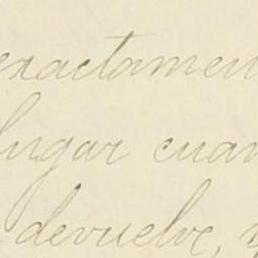 exactamen
lugar cuan
devuelve, y